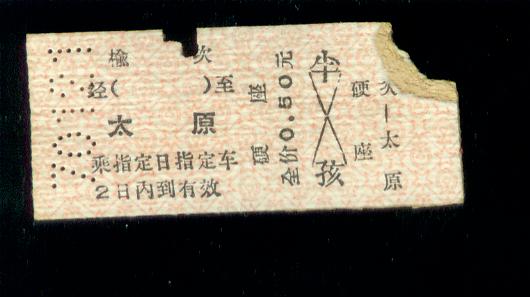 榆 次
经( )至
太 原
乘指定日指定车
2日内到有效
硬 座
全价0.50元
半 孩
硬 座
次—太 原